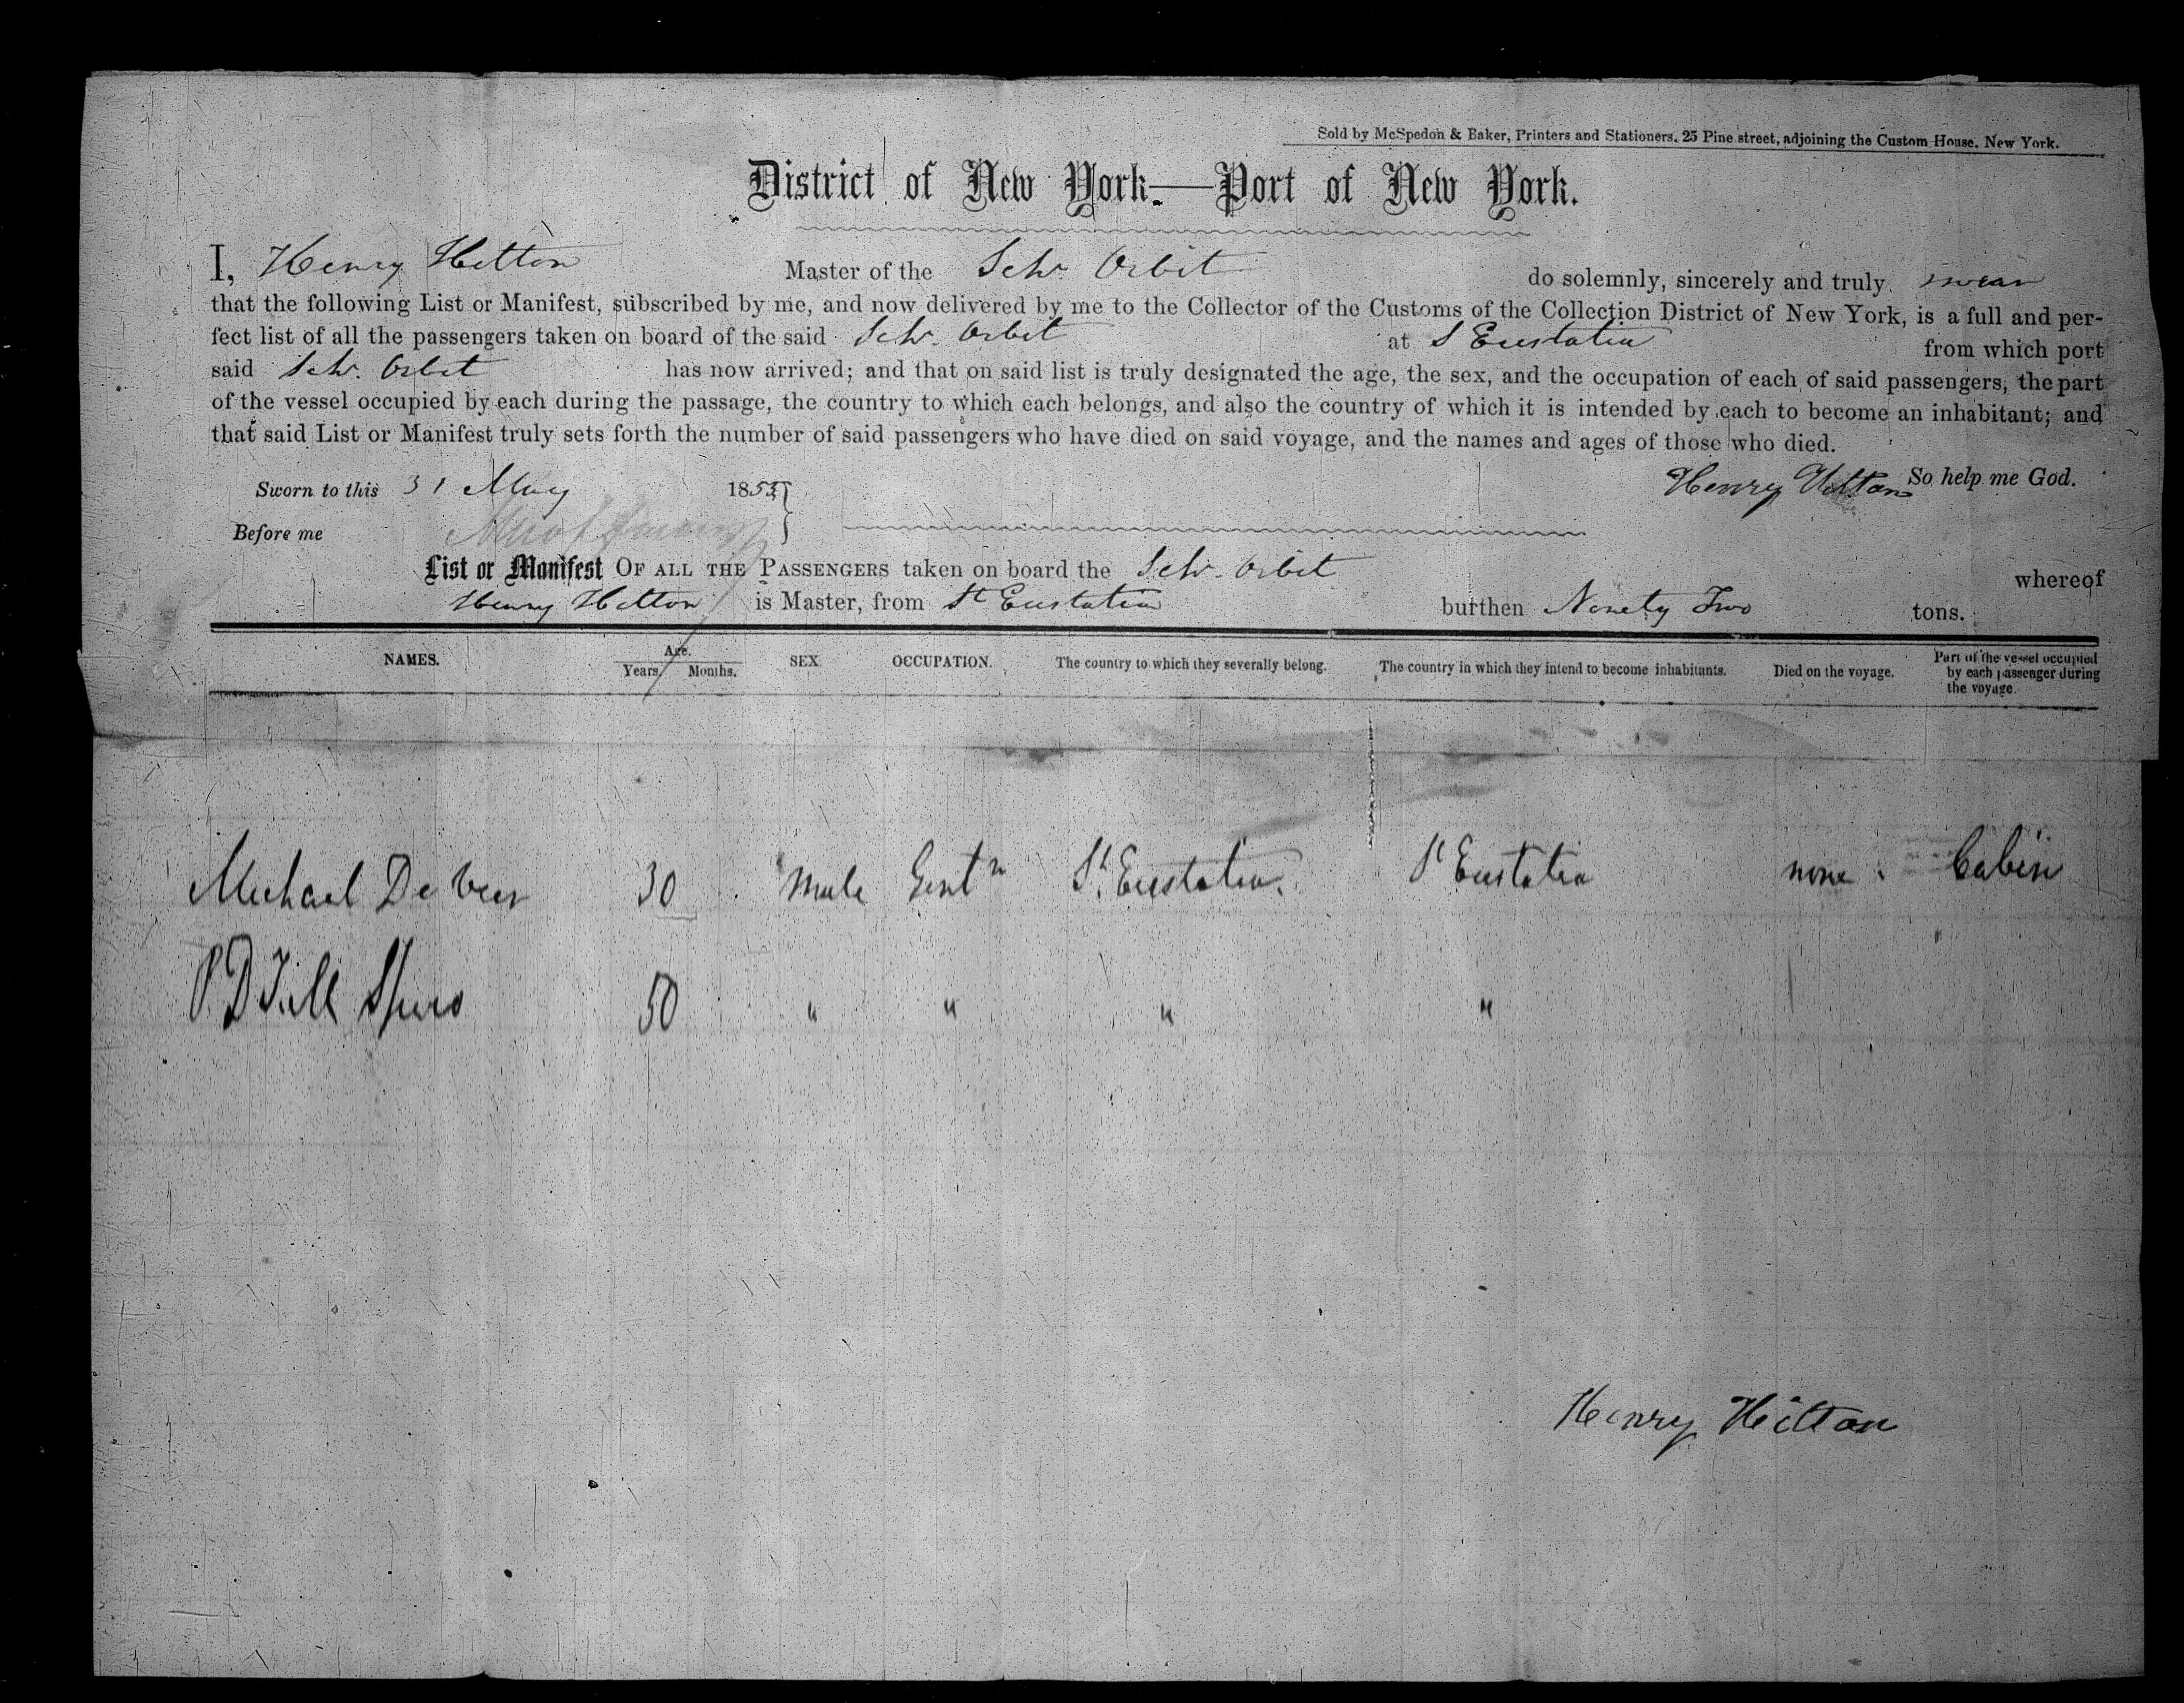 Sold by McSpedon & Baker, Printers and Stationers, 25 Pine street, adjoining the Custom House, New York.
District of New York—Port of New York.
I, Henry Hilton Master of the Schr Orbit do solemnly, sincerely and truly swear
that the following List or Manifest, subscribed by me, and now delivered by me to the Collector of the Customs of the Collection District of New York, is a full and per-
fect list of all the passengers taken on board of the said Schr. Orbit at S Eustatia from which port
said Schr. Orbit has now arrived; and that on said list is truly designated the age, the sex, and the occupation of each of said passengers, the part
of the vessel occupied by each during the passage, the country to which each belongs, and also the country of which it is intended by each to become an inhabitant; and
that said List or Manifest truly sets forth the number of said passengers who have died on said voyage, and the names and ages of those who died.
Sworn to this 31 May 1853 Henry Hilton So help me God.
Before me
List or Manifest OF ALL THE PASSENGERS taken on board the Schr. Orbit whereof
Henry Hilton is Master, from St Eustatia burthen Ninety Two tons.
NAMES. Age. Years. Months. SEX. OCCUPATION. The country to which they severally belong. The country in which they intend to become inhabitants. Died on the voyage. Part of the vessel occupied by each passenger during the voyage.
Michael De 30 Male Gentn St. Eustatia. St Eustatia none. Cabin
50 " " " " "
Henry Hilton